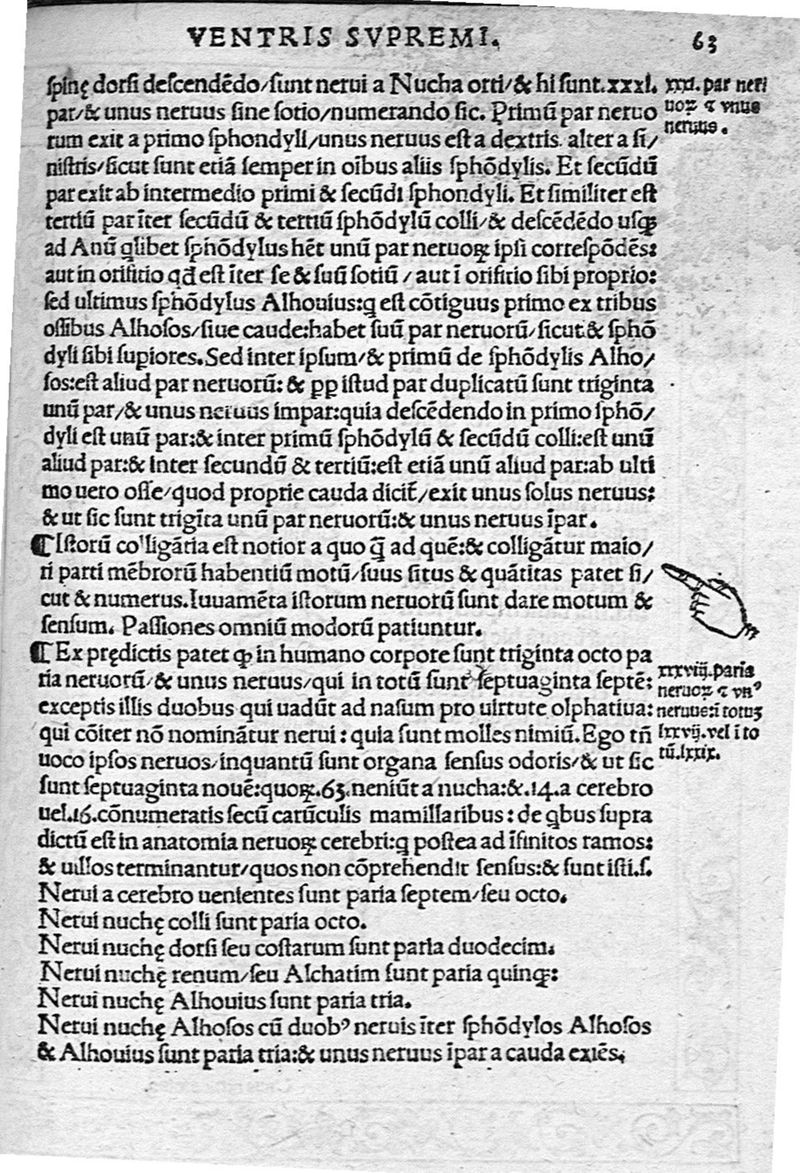 VENTRIS SVPREMI.
63
spinę dorsi descendēdo/sunt nerui a Nucha orti/& hi sunt.xxxi.
par/& unus neruus sine sotio/numerando sic. Primū par neruo
rum exit a primo sphondyli/unus neruus est a dextris. alter a si/
nistris/sicut sunt etiā semper in oībus aliis sphōdylis. Et secūdū
par exit ab intermedio primi & secūdi sphondyli. Et similiter est
tertiū par īter secūdū & tertiū sphōdylū colli/& descēdēdo usqꝫ
ad Anū qlibet sphōdylus hēt unū par neruoꝝ ipsi correspōdēs:
aut in orifitio qd̄ est īter se & suū sotiū / aut ī orifitio sibi proprio:
sed ultimus sphōdylus Alhouius:q est cōtiguus primo ex tribus
ossibus Alhosos/siue caude:habet suū par neruorū/sicut & sphō
dyli sibi supiores. Sed inter ipsum/& primū de sphōdylis Alho/
sos:est aliud par neruorū: & ꝓp istud par duplicatū sunt triginta
unū par/& unus neruus impar:quia descēdendo in primo sphō/
dyli est unū par:& inter primū sphōdylū & secūdū colli:est unū
aliud par:& inter secundū & tertiū:est etiā unū aliud par:ab ulti
mo uero osse/quod proprie cauda dicit̄/exit unus solus neruus:
& ut sic sunt trigīta unū par neruorū:& unus neruus īpar.
¶Istorū co'ligātia est notior a quo q̄ ad quē:& colligātur maio/
ri parti mēbrorū habentiū motū/suus situs & quātitas patet si/
cut & numerus. Iuuamēta istorum neruorū sunt dare motum &
sensum. Passiones omniū modorū patiuntur.
¶Ex prędictis patet ꝙ in humano corpore sunt triginta octo pa
ria neruorū/& unus neruus/qui in totū sunt septuaginta septē:
exceptis illis duobus qui uadūt ad nasum pro uirtute olphatiua:
qui cōiter nō nominātur nerui : quia sunt molles nimiū. Ego tn̄
uoco ipsos neruos/inquantū sunt organa sensus odoris/& ut sic
sunt septuaginta nouē:quoꝝ.63.neniūt a nucha:&.14.a cerebro
uel.16.cōnumeratis secū carūculis mamillaribus: de qbus supra
dictū est in anatomia neruoꝝ cerebri:q postea ad īfinitos ramos:
& uillos terminantur/quos non cōprehendit sensus:& sunt isti.s.
Nerui a cerebro uenientes sunt paria septem/seu octo.
Nerui nuchę colli sunt paria octo.
Nerui nuchę dorsi seu costarum sunt paria duodecim.
Nerui nuchę renum/seu Alchatim sunt paria quinqꝫ:
Nerui nuchę Alhouius sunt paria tria.
Nerui nuchę Alhosos cū duobꝰ neruis īter sphōdylos Alhosos
& Alhouius sunt paria tria:& unus neruus īpar a cauda exiēs.
xxxi. par neri
uoꝝ ⁊ vnus
neruus.
xxxviij. paria
neruoꝝ ⁊ vnꝰ
neruus:ī totuꝫ
lxxvij. vel ī to
tū.lxxix.